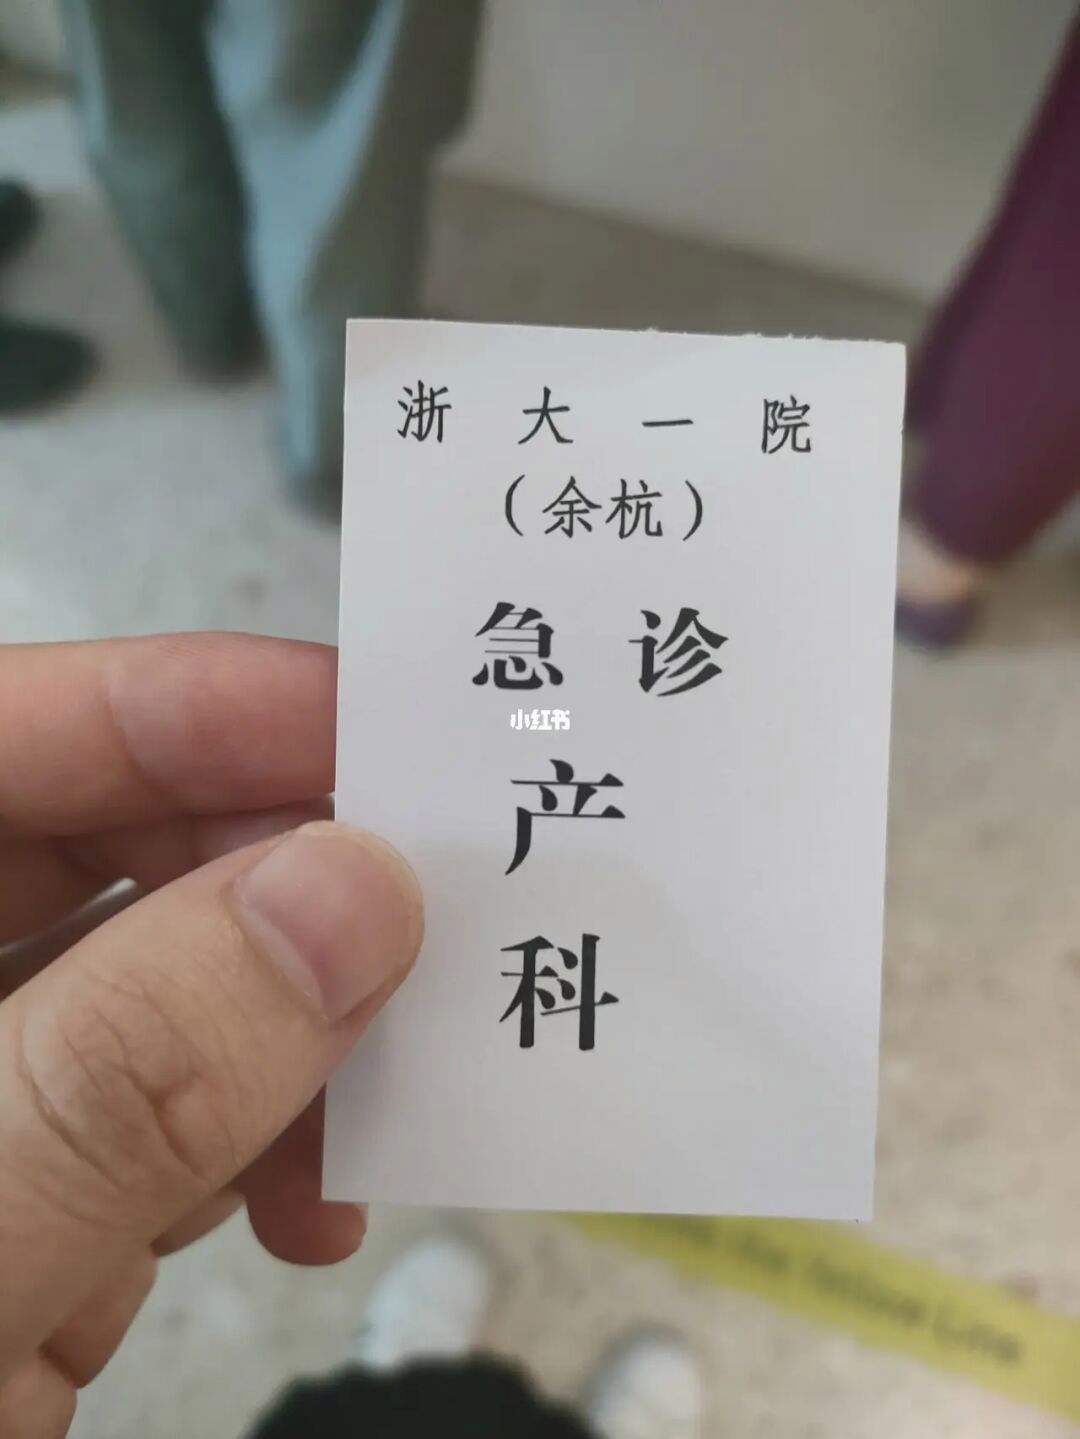 浙大一院
（余杭）
急诊
小红书
产
科